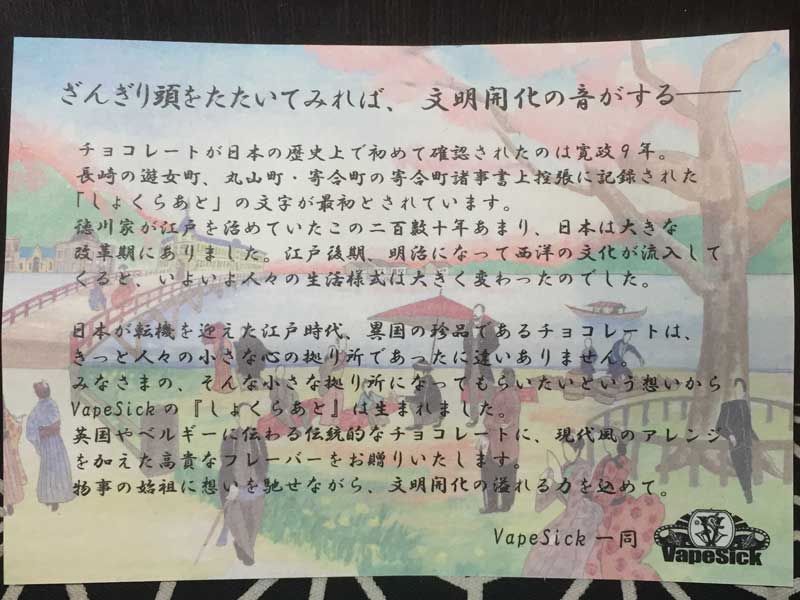 ざんぎり頭をたたいてみれば、文明開化の音がする――
チョコレートが日本の歴史上で初めて確認されたのは寛政9年。
長崎の遊女町、丸山町・寄合町の寄合町諸事書上控張に記録された
「しょくらあと」の文字が最初とされています。
徳川家が江戸を治めていたこの二百数十年あまり、日本は大きな
改革期にありました。江戸後期、明治になって西洋の文化が流入して
くると、いよいよ人々の生活様式は大きく変わったのでした。
日本が転機を迎えた江戸時代、異国の珍品であるチョコレートは、
きっと人々の小さな心の拠り所であったに違いありません。
みなさまの、そんな小さな拠り所になってもらいたいという想いから
VapeSickの『しょくらあと』は生まれました。
英国やベルギーに伝わる伝統的なチョコレートに、現代風のアレンジ
を加えた高貴なフレーバーをお贈りいたします。
物事の始祖に想いを馳せながら、文明開化の溢れる力を込めて。
VapeSick一同
VapeSick